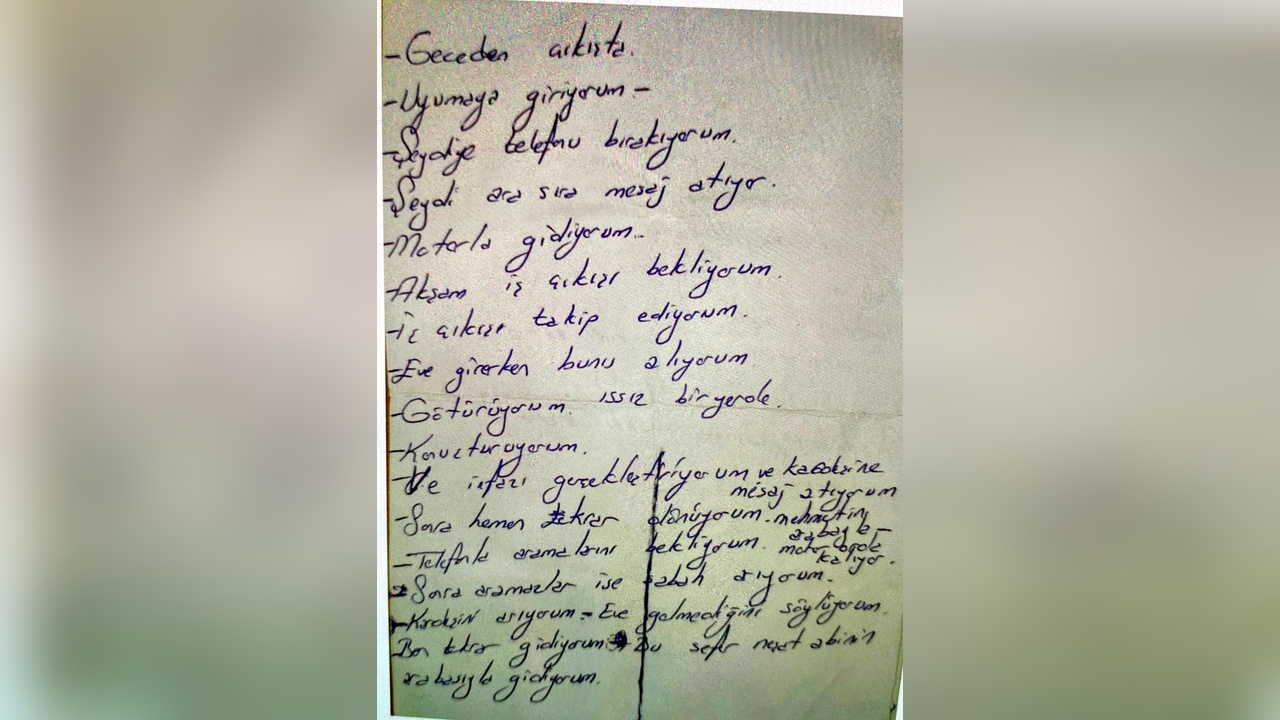 -Geceden çıkışta.
-Uyumaya giriyorum-
-Şeydiye telefonu bırakıyorum.
-Şeydi ara sıra mesaj atıyor.
-Motorla gidiyorum..
-Akşam iş çıkışı bekliyorum.
-İş çıkışı takip ediyorum.
-Eve girerken bunu alıyorum
-Götürüyorum. ıssız bir yerde.
-Konuşturuyorum.
Ve infazı gerçekleştiriyorum ve kardeşine
mesaj atıyorum
-Sonra hemen tekrar dönüyorum. mehmetin
arabayla-
-Telefonla aramalarını bekliyorum. motor orda
kalıyor.
-Sonra aramazlar ise sabah arıyorum.
-Kardeşini arıyorum- Eve gelmediğini söylüyorum.
Ben tekrar gidiyorum. Bu sefer neşet abinin
arabasıyla gidiyorum.